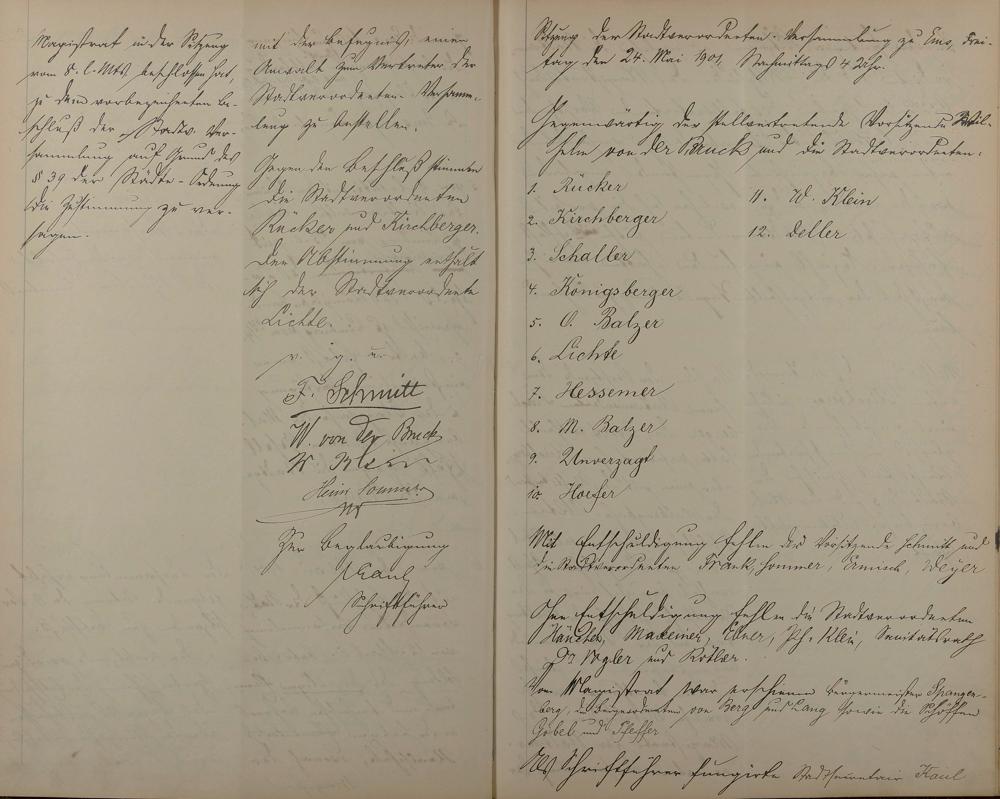 Magistrat in der Sitzung
vom 8. l. Mts. beschlossen hat,
zu dem vorbezeichneten Be-
schluß der Stadtv. Ver-
sammlung auf Grund des
§ 39 der Städte-Ordnung
die Zustimmung zu ver-
sagen.
mit der Befugniß, einen
Anwalt zum Vertreter der
Stadtverordneten-Versamm-
lung zu bestellen.
Gegen den Beschluß stimmen
die Stadtverordneten
Rücker und Kirchberger.
Der Abstimmung enthält
sich der Stadtverordnete
Lichte.
v. g. u.
F. Schmitt
W. von der Bruck
W Klein
Heinr Sommer
Zur Beglaubigung
Kaul
Schriftführer
Sitzung der Stadtverordneten-Versammlung zu Ems, Frei-
tag den 24. Mai 1901, Nachmittags 4 Uhr.
Gegenwärtig der stellvertretende Vorsitzende Wil-
helm von der Bruck und die Stadtverordneten:
1. Rücker
2. Kirchberger
3. Schaller
4. Königsberger
5. O. Balzer
6. Lichte
7. Hessemer
8. M. Balzer
9. Unverzagt
10. Hoefer
11. W. Klein
12. Deller
Mit Entschuldigung fehlen der Vorsitzende Schmitt und
die Stadtverordneten Frank, Sommer, Ermisch, Weyer
Ohne Entschuldigung fehlen die Stadtverordneten
Maxeiner, Ebner, Ph. Klein, Sanitätsrath
Dr Vogler und
Vom Magistrat war erschienen Bürgermeister Spangen-
berg, die Beigeordneten von Berg und Lang sowie die Schöffen
Göbel und Pfeffer
Als Schriftführer fungirte Stadtsecretair Kaul